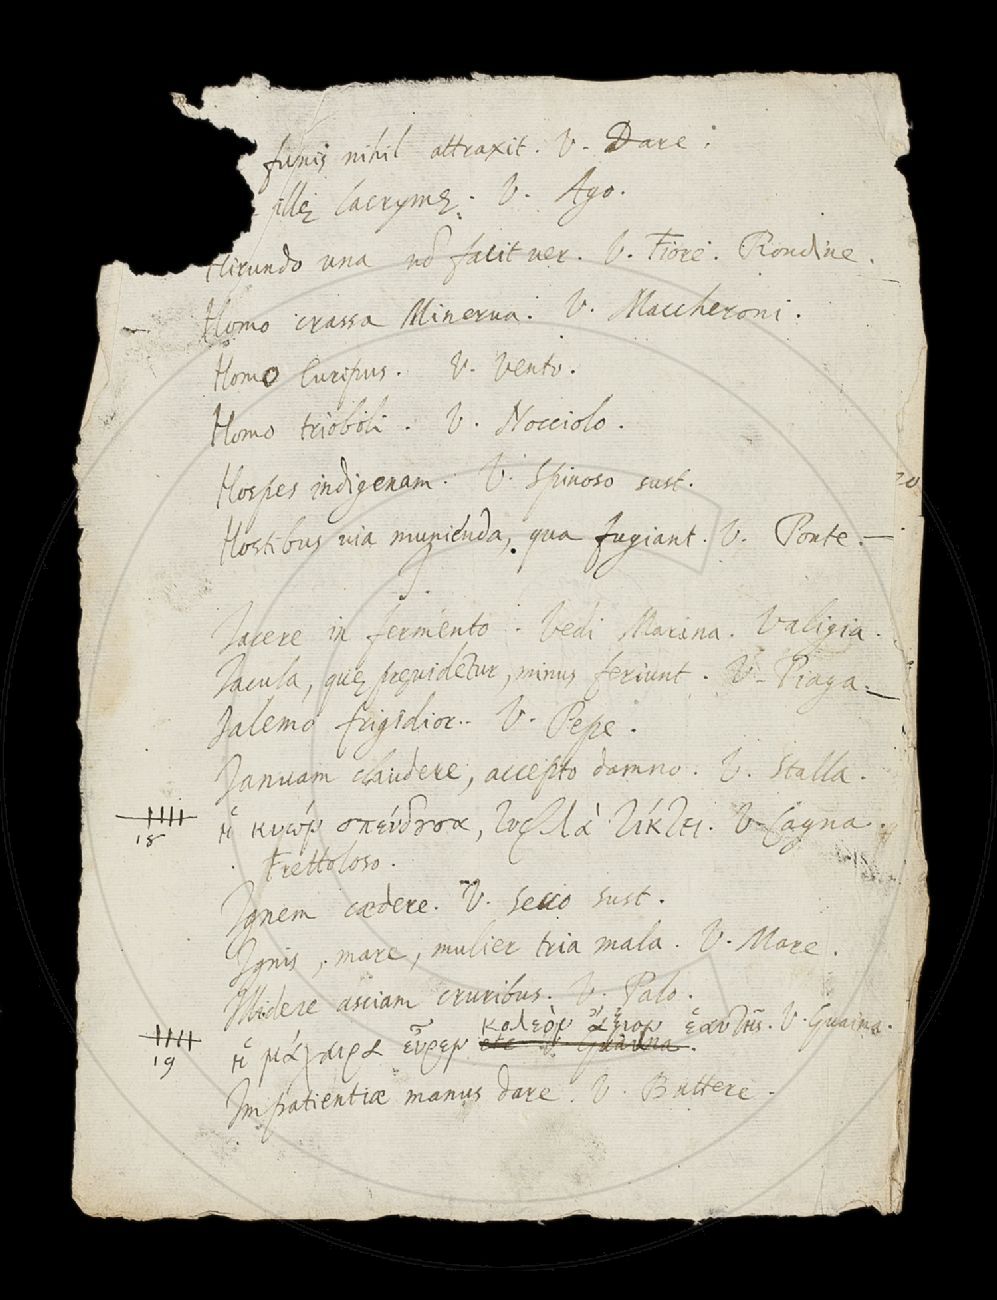 funis nihil attraxit. V. Dare.
illę lacrymę. V. Ago.
Hirundo una nō facit uer. V. Fiore. Rondine.
Homo crassa Minerua. V. Maccheroni.
Homo Euripus. V. Vento.
Homo trioboli. V. Nocciolo.
Hospes indigenam. V. Spinoso sust.
20
Hostibus uia munienda, qua fugiant. V. Ponte.
Jacere in fermento. Vedi Marina. Valigia.
Jacula, quę pręuidētur, minus feriunt. V. Piaga.
Jalemō frigidior. V. Pepe.
Januam claudere, accepto damno. V. Stalla.
18 ἡ κυὼν σπεύδουσα, τυφλὰ τίκτει. V. Cagna.
Frettoloso.
Ignem cædere. V. Secco sust.
Ignis, mare, mulier tria mala. V. Mare.
Illidere asciam cruribus. V. Palo.
κολεὸν ἄξιον ἑαυτῆς. V. Guaina.
19 ἡ μάχαιρα εὗρεν etc V. Guaina.
Impatientiæ manus dare. V. Battere.